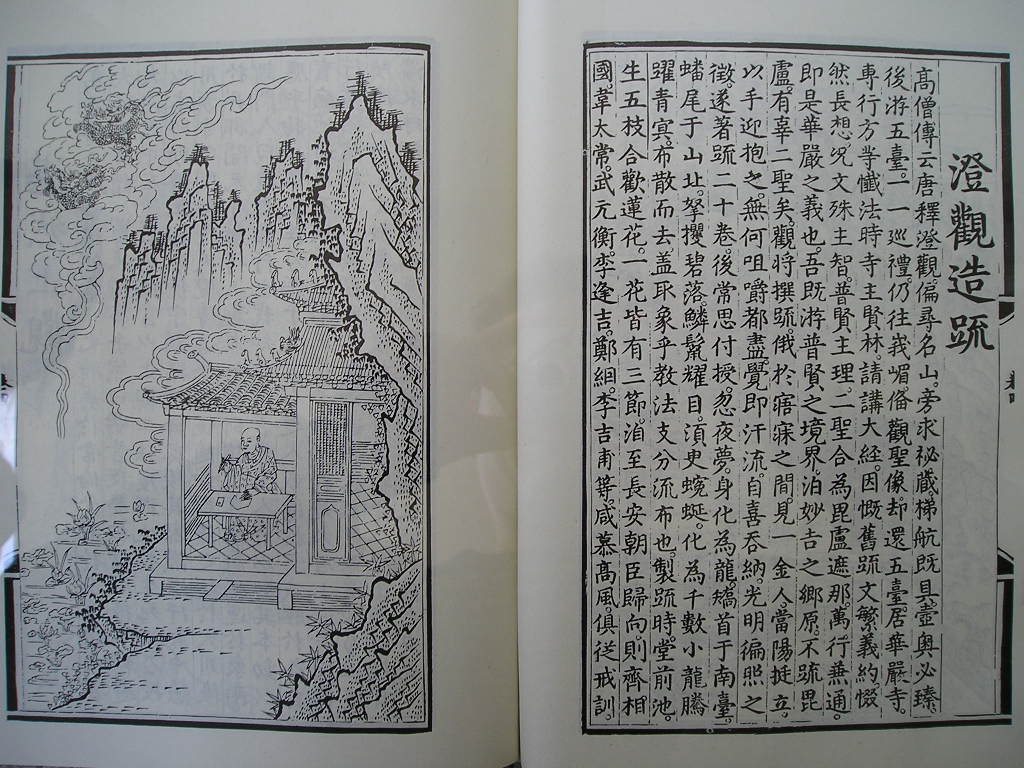 澄觀造疏
高僧傳云唐釋澄觀偏尋名山。旁求祕藏梯航既具壼奧必臻。
後游五臺。一一巡禮仍往峩嵋俻觀聖像。却還五臺居華嚴寺。
專行方等懺法時寺主賢林。請講大経。因慨舊䟽文繁義約惙
然長想。況文殊主智普賢主理。二聖合為毘盧遮那。萬行兼通。
即是華嚴之義也。吾既游普賢之境界。泊妙吉之鄉原。不䟽毘
盧。有辜二聖矣觀将撰䟽。俄於寤寐之間。見一金人。當陽挺立。
以手迎抱之無何咀嚼都盡覺即汗流。自喜吞納。光明徧照之
徵。遂著䟽二十卷。後常思付授忽夜夢身化為龍。矯首于南臺。
蟠尾于山北。拏攫碧落。鱗鬣耀日。湏更蜿蜒。化為千數小龍騰
躍青㝠。布散而去盖取象乎教法支分流布也。製䟽時。堂前池。
生五枝合歡蓮花。一花皆有三節。洎至長安朝臣歸向。則齊相
國。韋太常。武元衡。李逢吉。鄭絪。李吉甫等。咸慕高風。俱従戒訓。